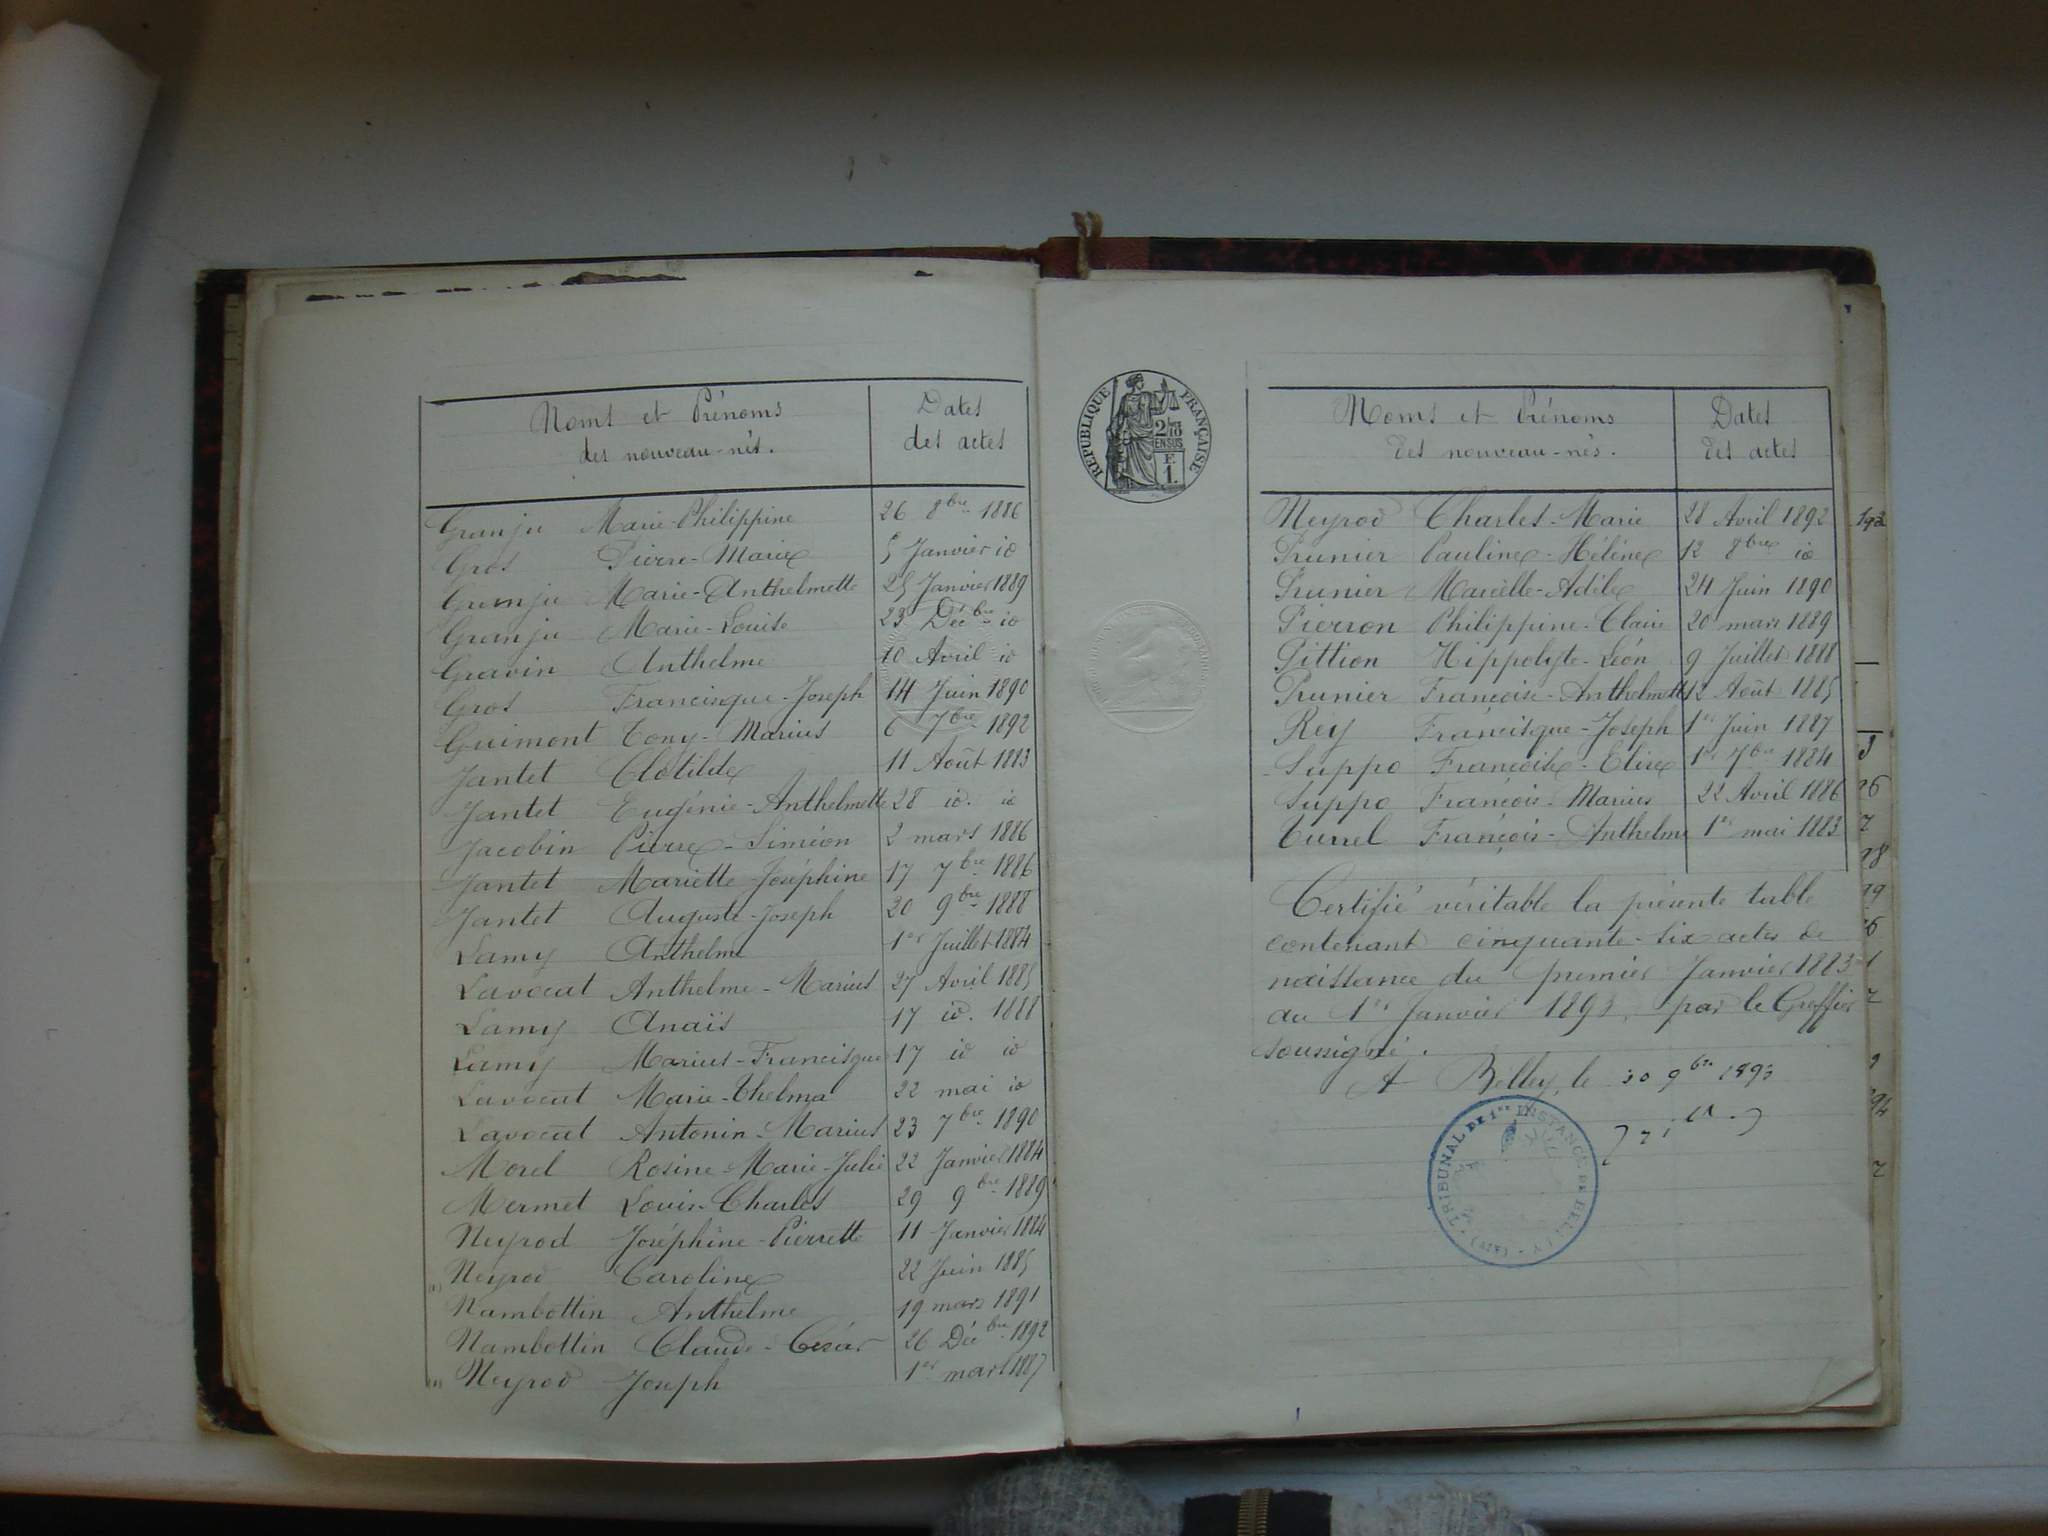 Noms et Prénoms
des nouveau-nés.
Dates
des actes
Granju Marie-Philippine 26 8bre 1886
Gros Pierre-Marie 5 Janvier id
Granju Marie-Anthelmette 25 Janvier 1889
Granju Marie-Louise 23 Décbre id
Gravin Anthelme 10 Avril id
Gros Francisque-Joseph 14 Juin 1890
Guimont Tony-Marius 6 7bre 1892
Jantet Clotilde 11 Août 1883
Jantet Eugénie-Anthelmette 28 id. id
Jacobin Pierre-Siméon 2 mars 1886
Jantet Mariette-Joséphine 17 7bre 1886
Jantet Auguste-Joseph 20 9bre 1888
Lamy Anthelme 1er Juillet 1884
Lavocat Anthelme-Marius 27 Avril 1885
Lamy Anaïs 17 id. 1888
Lamy Marius-Francisque 17 id id
Lavocat Marie-Thelma 22 mai id
Lavocat Antonin-Marius 23 7bre 1890
Morel Rosine-Marie-Julie 22 Janvier 1884
Mermet Louis-Charles 29 9bre 1889
Neyrod Joséphine-Pierrette 11 Janvier 1884
Neyrod Caroline 22 Juin 1885
Nambottin Anthelme 19 mars 1891
Nambottin Claude-César 26 Décbre 1892
Neyrod Joseph 1er mars 1887
RÉPUBLIQUE FRANÇAISE
2/10
EN SUS
F.
1.
Noms et Prénoms
des nouveau-nés.
Dates
des actes
Neyrod Charles-Marie 28 Avril 1892
Prunier Pauline-Hélène 12 8bre id
Prunier Marcelle-Adèle 24 Juin 1890
Pierron Philippine-Claire 20 mars 1889
Pittion Hippolyte-Léon 9 Juillet 1888
Prunier Françoise-Anthelmette 12 Août 1885
Rey Francisque-Joseph 1er Juin 1887
Suppo Françoise-Elise 1er 7bre 1884
Suppo François-Marius 22 Avril 1886
Turrel François-Anthelme 1er mai 1883
Certifié véritable la présente table
contenant cinquante-six actes de
naissance du premier Janvier 1883
au 1er Janvier 1893, par le Greffier
soussigné.
A Belley, le 30 9bre 1893
TRIBUNAL DE 1re INSTANCE DE BELLEY (AIN)